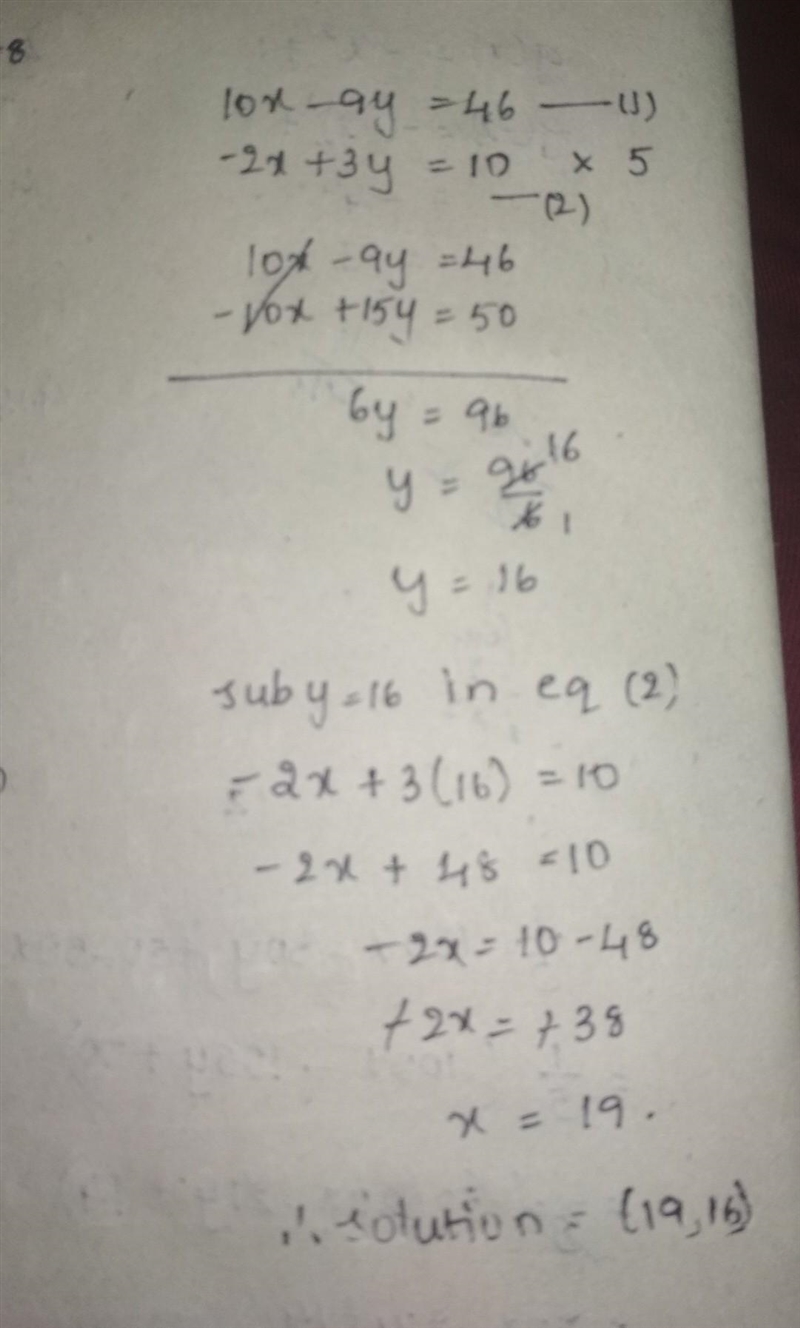 8
10x - 9y = 46 — (1)
-2x + 3y = 10 × 5
— (2)
10x - 9y = 46
-10x + 15y = 50
6y = 96
y = 96/6 16 1
y = 16
sub y = 16 in eq (2)
-2x + 3(16) = 10
-2x + 48 = 10
-2x = 10 - 48
+2x = +38
x = 19.
∴ solution = (19,16)